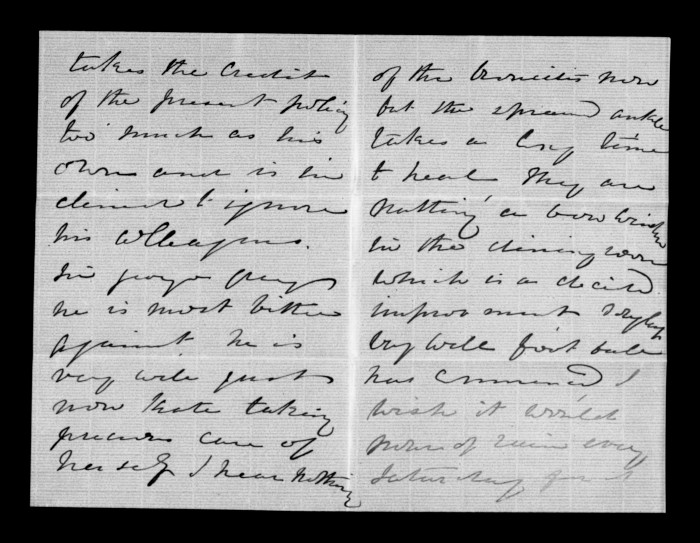 takes the Credit
of the present policy
too much as his
own and is in
clined to ignore
his colleagues.
Sir George Grey
he is most bitter
against he is
very well just
now Kate taking
precious care of
herself I hear nothing
of the bronchitis now
but the sprained ankle
takes a long time
to heal They are
putting a bow window
in the dining room
which is a decided
improvement
very well foot ball
has commenced I
wish it would
pour of rain every
Saturday